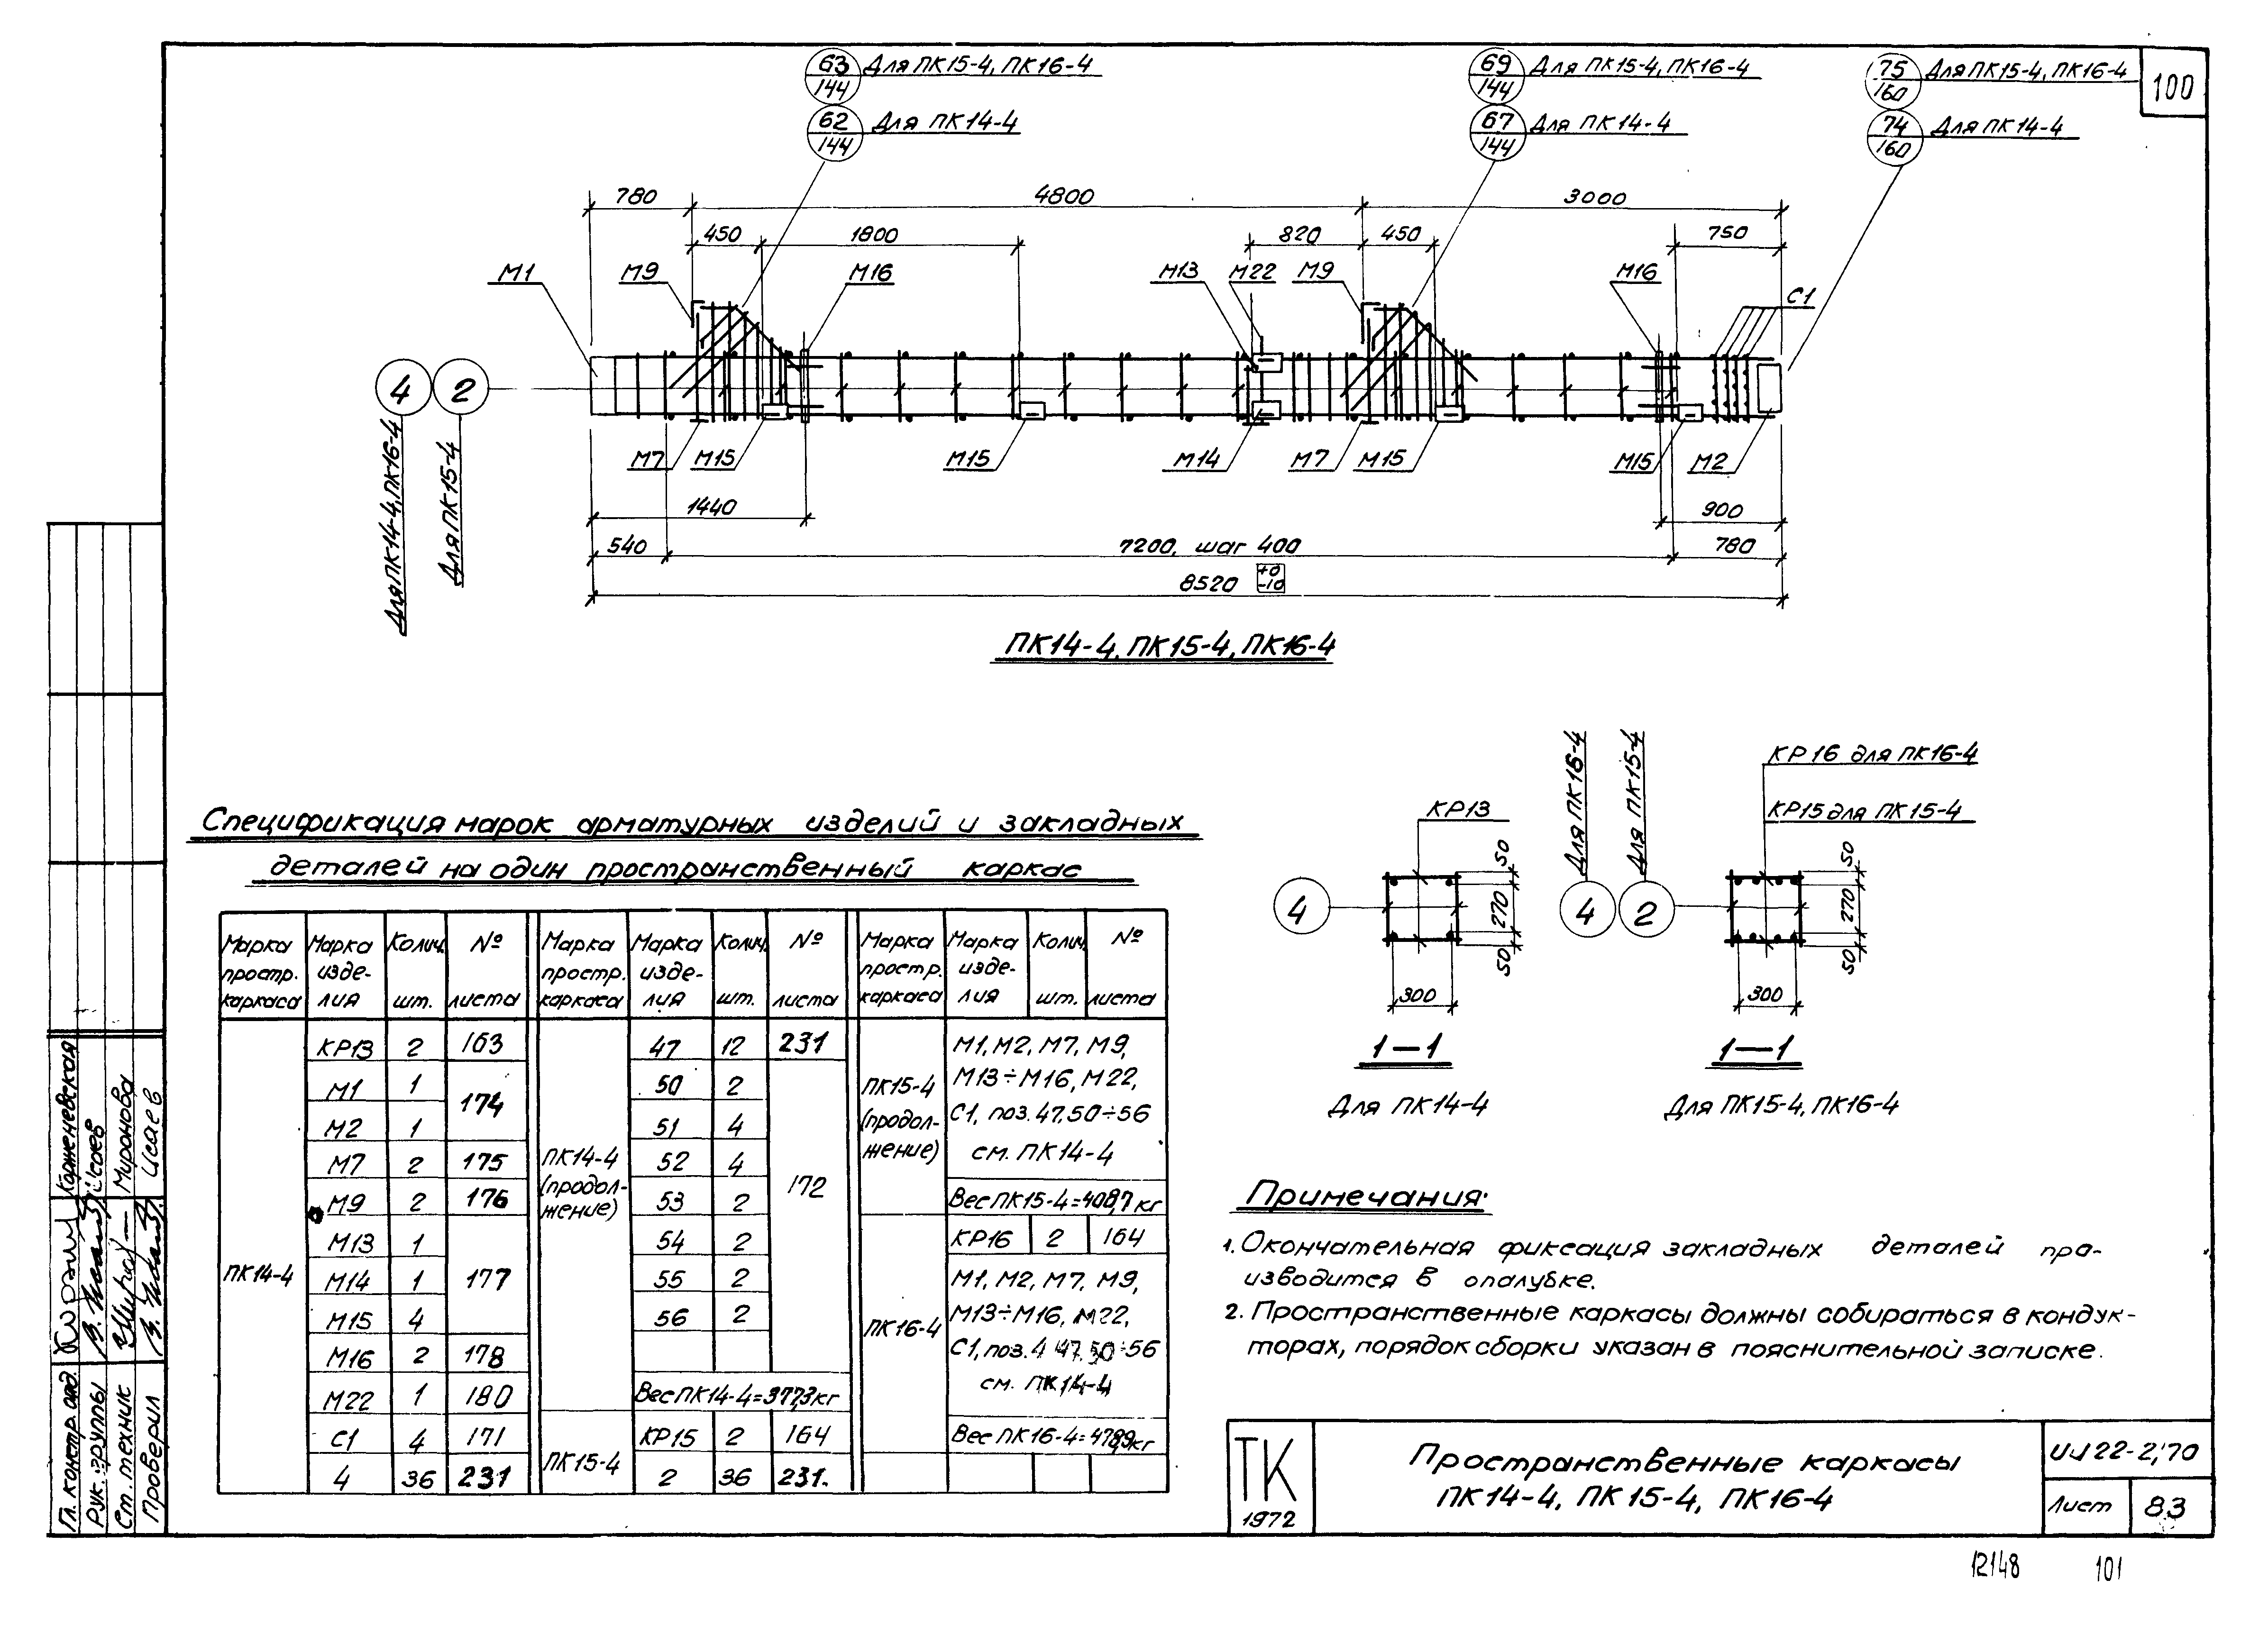 100
63/144 Для ПК15-4, ПК16-4
62/144 Для ПК14-4
69/144 Для ПК15-4, ПК16-4
67/144 Для ПК14-4
75/160 Для ПК15-4, ПК16-4
74/160 Для ПК14-4
780 4800 3000
450 1800 820 450 750
М1 М9 М16 М13 М22 М9 М16 С1
4 2
Для ПК14-4, ПК16-4
Для ПК15-4
М7 М15 М15 М14 М7 М15 М15 М2
1440 900
540 7200, шаг 400 780
8520 +0 -10
ПК14-4, ПК15-4, ПК16-4
Спецификация марок арматурных изделий и закладных
деталей на один пространственный каркас
Марка простр. каркаса | Марка изделия | Колич. шт. | № листа
ПК14-4
КР13 2 163
М1 1 174
М2 1
М7 2 175
М9 2 176
М13 1 177
М14 1
М15 4
М16 2 178
М22 1 180
С1 4 171
4 36 231
Марка простр. каркаса | Марка изде-лия | Колич. шт. | № листа
ПК14-4 (продол-жение)
47 12 231
50 2 172
51 4
52 4
53 2
54 2
55 2
56 2
Вес ПК14-4=377,3кг
ПК15-4
КР15 2 164
2 36 231.
Марка простр. каркаса | Марка изде-лия | Колич. шт. | № листа
ПК15-4 (продол-жение)
М1, М2, М7, М9,
М13÷М16, М22,
С1, поз. 47,50÷56
см. ПК14-4
Вес ПК15-4=408,7кг
ПК16-4
КР16 2 164
М1, М2, М7, М9,
М13÷М16, М22,
С1, поз. 4 47,50÷56
см. ПК14-4
Вес ПК16-4=478,9кг
КР13
4
50 270 50
300
1-1
Для ПК14-4
Для ПК16-4
Для ПК15-4
4 2
КР16 для ПК16-4
КР15 для ПК15-4
50 270 50
300
1-1
Для ПК15-4, ПК16-4
Примечания:
1. Окончательная фиксация закладных деталей про-
изводится в опалубке.
2. Пространственные каркасы должны собираться в кондук-
торах, порядок сборки указан в пояснительной записке.
ТК
1972
Пространственные каркасы
ПК14-4, ПК15-4, ПК16-4
ИИ22-2/70
Лист 83
Гл. констр. отд. Корженевская
Рук. группы Исаев
Ст. техник Миронова
Проверил Исаев
12148 101